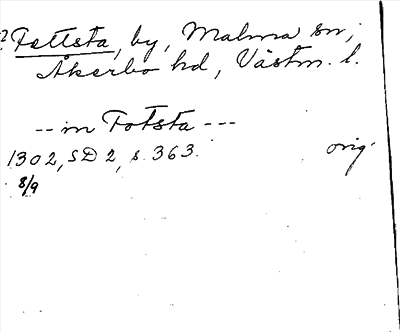 ? Fettsta, by, Malma sn,
Åkerbo hd, Västm. l.
-- in Fotsta ---
1302, SD 2, s. 363. orig.
8/9